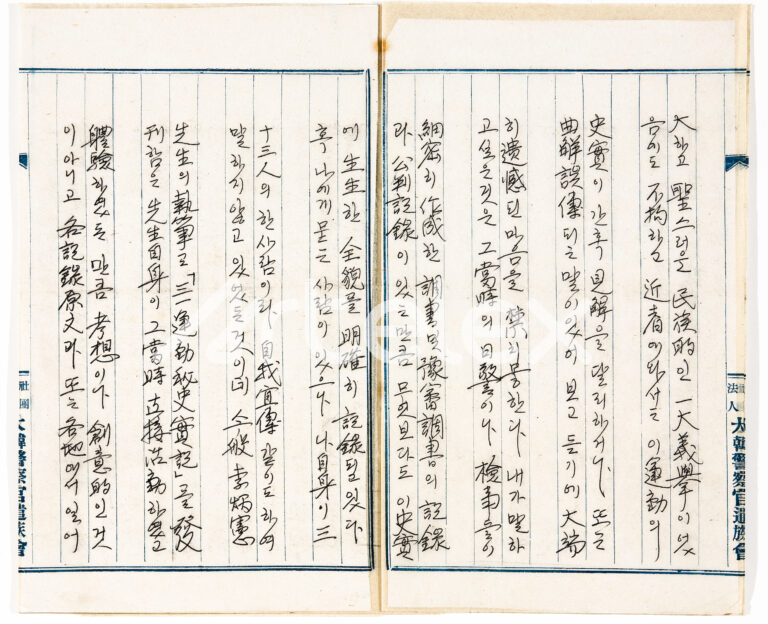 大하고 聖스러운 民族的인 一大義擧이엇
음에도 不拘하고 近者에와서는 이運動의
史實이 간혹 見解를 달리하거나 또는
曲解誤傳되는 말이있어 보고 듣기에 大端
히遺憾된 마음을 禁치못한다 내가 말하
고싶은것은 그當時의 日警이나 檢事들이
細密히 作成한 調書및豫審調書의 記錄
과 公判記錄이 있는만큼 무엇보다도 이史實
에 生生한 全貌를 明確히 記錄되있다
혹 나에게 묻는 사람이 있으나 나自身이 三
十三人의 한사람이라 自我宣傳같이도하여
말하지않고 있었든것이며 今般 李炳憲
先生의 執筆로「三一運動秘史實記」를 發
刊함은 先生自身이 그當時 直接活動하였고
體驗하였는만큼 考想이나 創意的인것
이아니고 各記錄原文과 또는 各地에서 얻어
社團
法人 大韓警察官遺族會
社團 大韓警察官遺族會